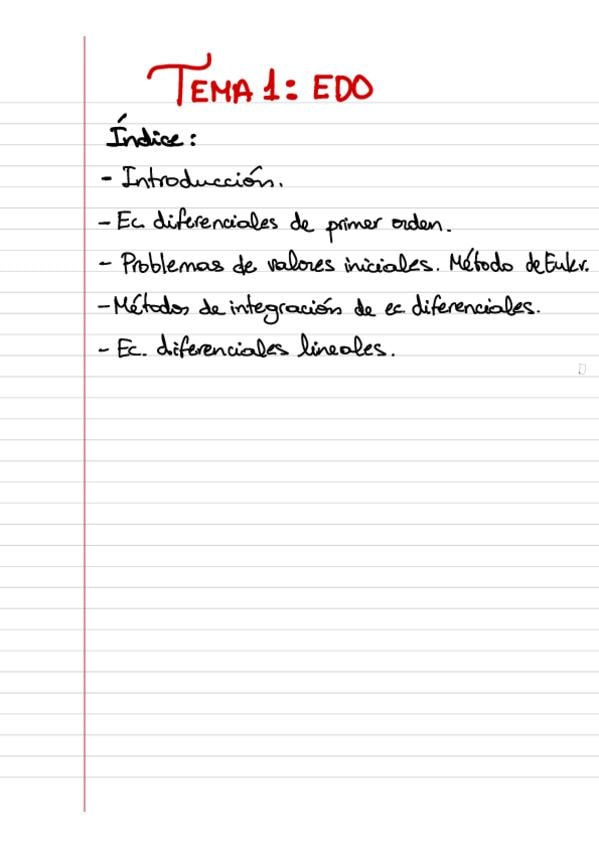 TEMA 1: EDO
Índice:
- Introducción.
- Ec. diferenciales de primer orden.
- Problemas de valores iniciales. Método de Euler.
- Métodos de integración de ec diferenciales.
- Ec. diferenciales lineales.